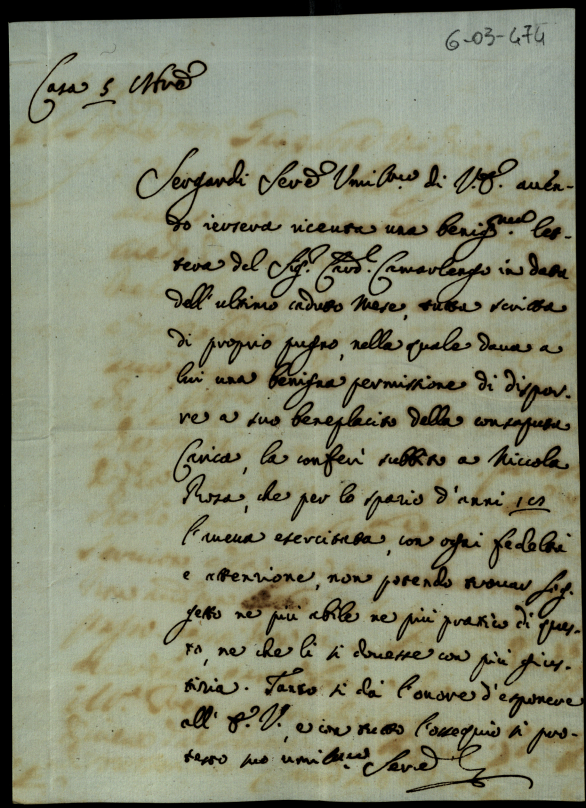 6-03-474
Casa 5 Nvre
Sergardi Servre Umilmo di V.S. aven-
do iersera ricevuta una benigma let-
tera del Sigr Card. Camarlengo in data
dell'ultimo caduto Mese, tutta scritta
di proprio pugno, nella quale dava a
lui una benigna permissione di dispor-
re a suo beneplacito della consaputa
Carica, la conferì subbito a Niccola
Rosa, che per lo spazio d'anni
l'aveva esercitata, con ogni fedeltà
e attenzione, non potendo trovar sog-
getto ne più abile ne più pratico di ques-
to, ne che li si dovesse con più gius-
tizia. Tanto si dà l'onore d'esponere
all' S.V., e con tutto l'ossequio si pro-
testa suo umilmo Serve